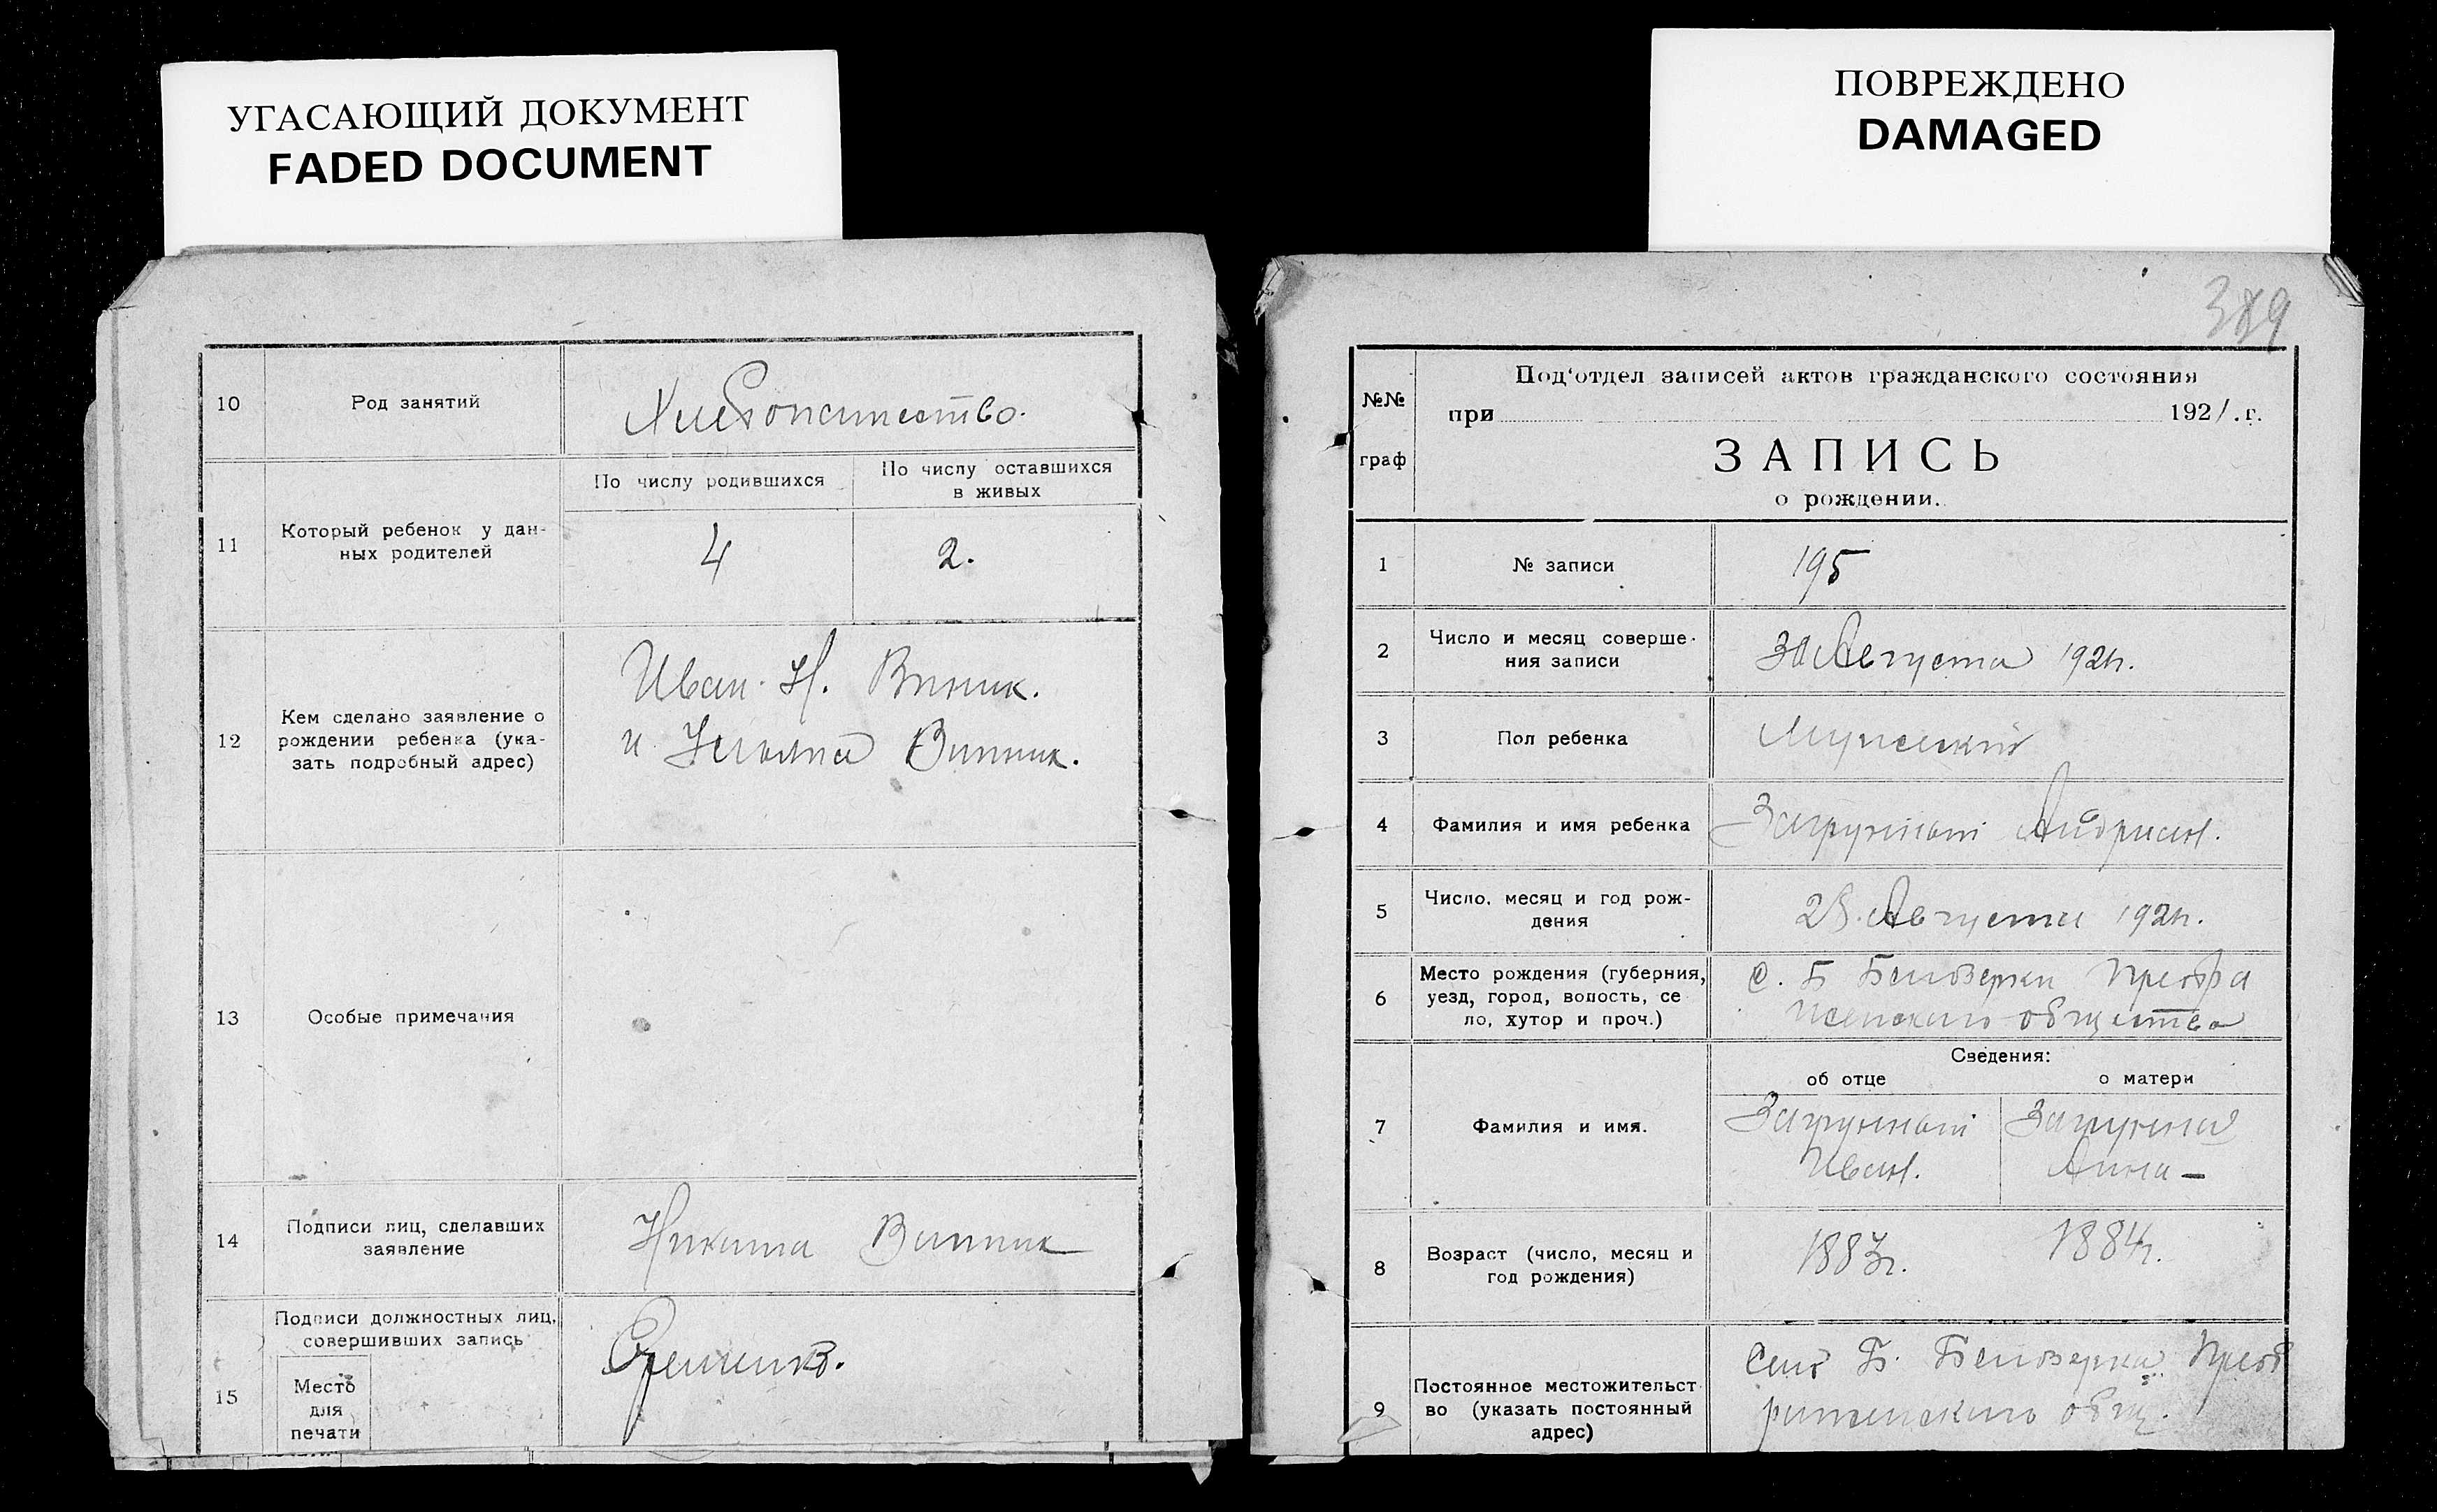 УГАСАЮЩИЙ ДОКУМЕНТ
FADED DOCUMENT
10
Род занятий
Хлебопашество.
11
Который ребенок у дан-
ных родителей
По числу родившихся
По числу оставшихся
в живых
4
2.
12
Кем сделано заявление о
рождении ребенка (ука-
зать подробный адрес)
Иван. Н. Винник.
и Винник.
13
Особые примечания
14
Подписи лиц, сделавших
заявление
Никита Винник
15
Подписи должностных лиц,
совершивших запись
Место
для
печати
ПОВРЕЖДЕНО
DAMAGED
389
№№
граф
Под'отдел записей актов гражданского состояния
при 1921.г.
ЗАПИСЬ
о рождении.
1
№ записи
195
2
Число и месяц соверше-
ния записи
30 Августа 1921г.
3
Пол ребенка
Мужеский
4
Фамилия и имя ребенка
Загрунный Андриан.
5
Число, месяц и год рож-
дения
28. Августа 1921г.
6
Место рождения (губерния,
уезд, город, волость, се
ло, хутор и проч.)
С. Б Белозерки
общества
Сведения:
об отце
о матери
7
Фамилия и имя.
Загрунный
Иван.
Загрунная
Анна -
8
Возраст (число, месяц и
год рождения)
1883г.
1884г.
9
Постоянное местожительст
во (указать постоянный
адрес)
Село Б. Белозерка
общ.